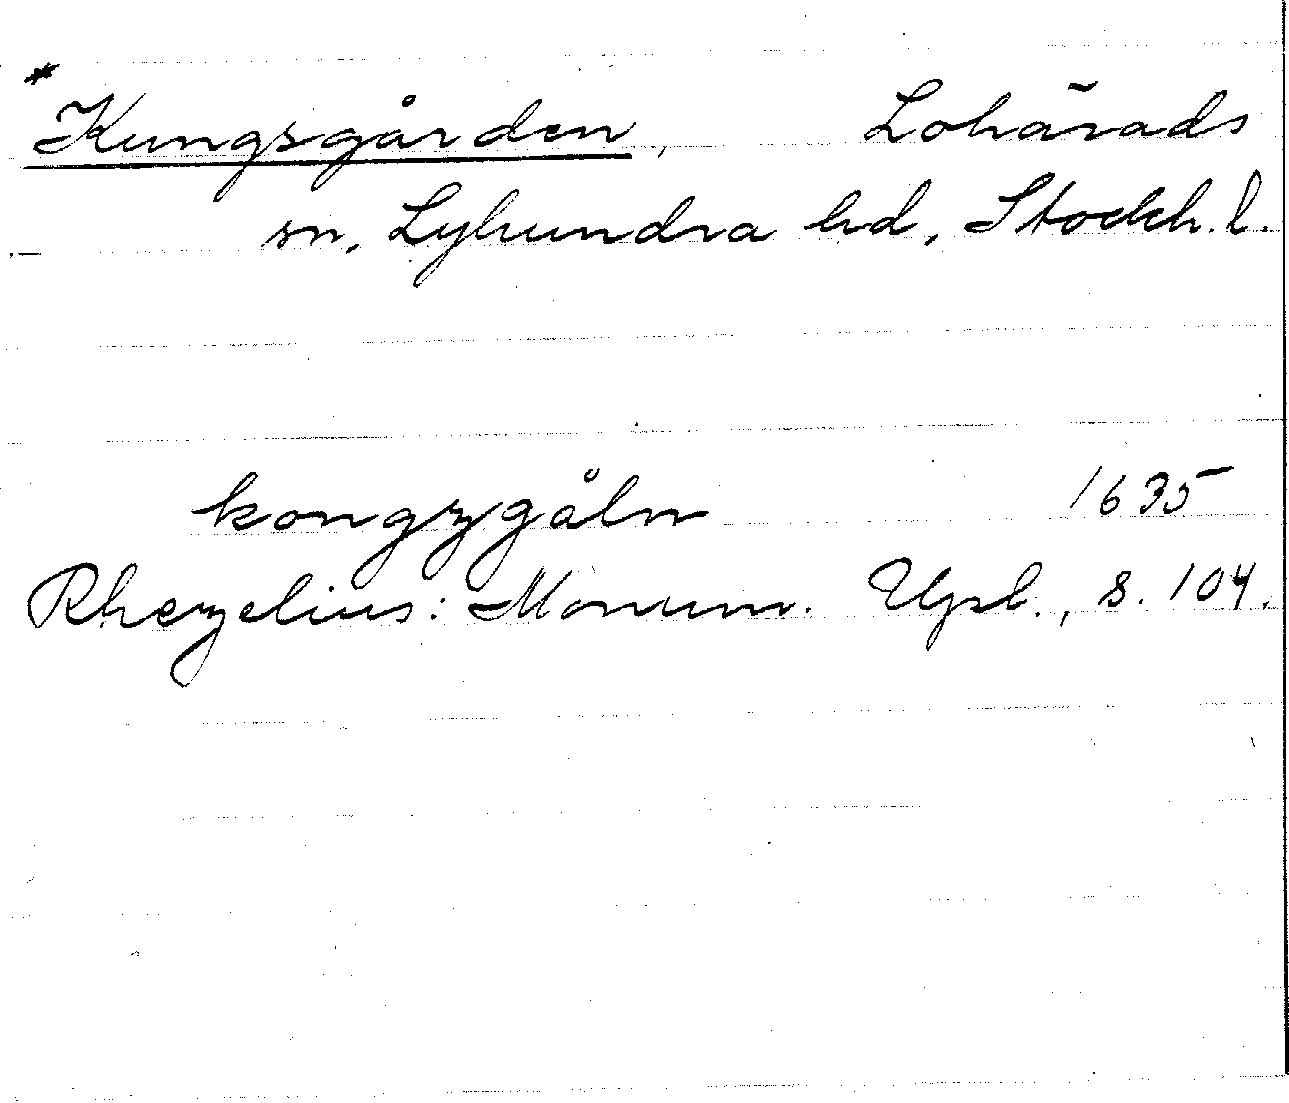 * Kungsgården, Lohärads
sn, Lyhundra hd, Stockh. l.
kongzgåln 1635
Rhezelius: Monum. Upl., s. 104.